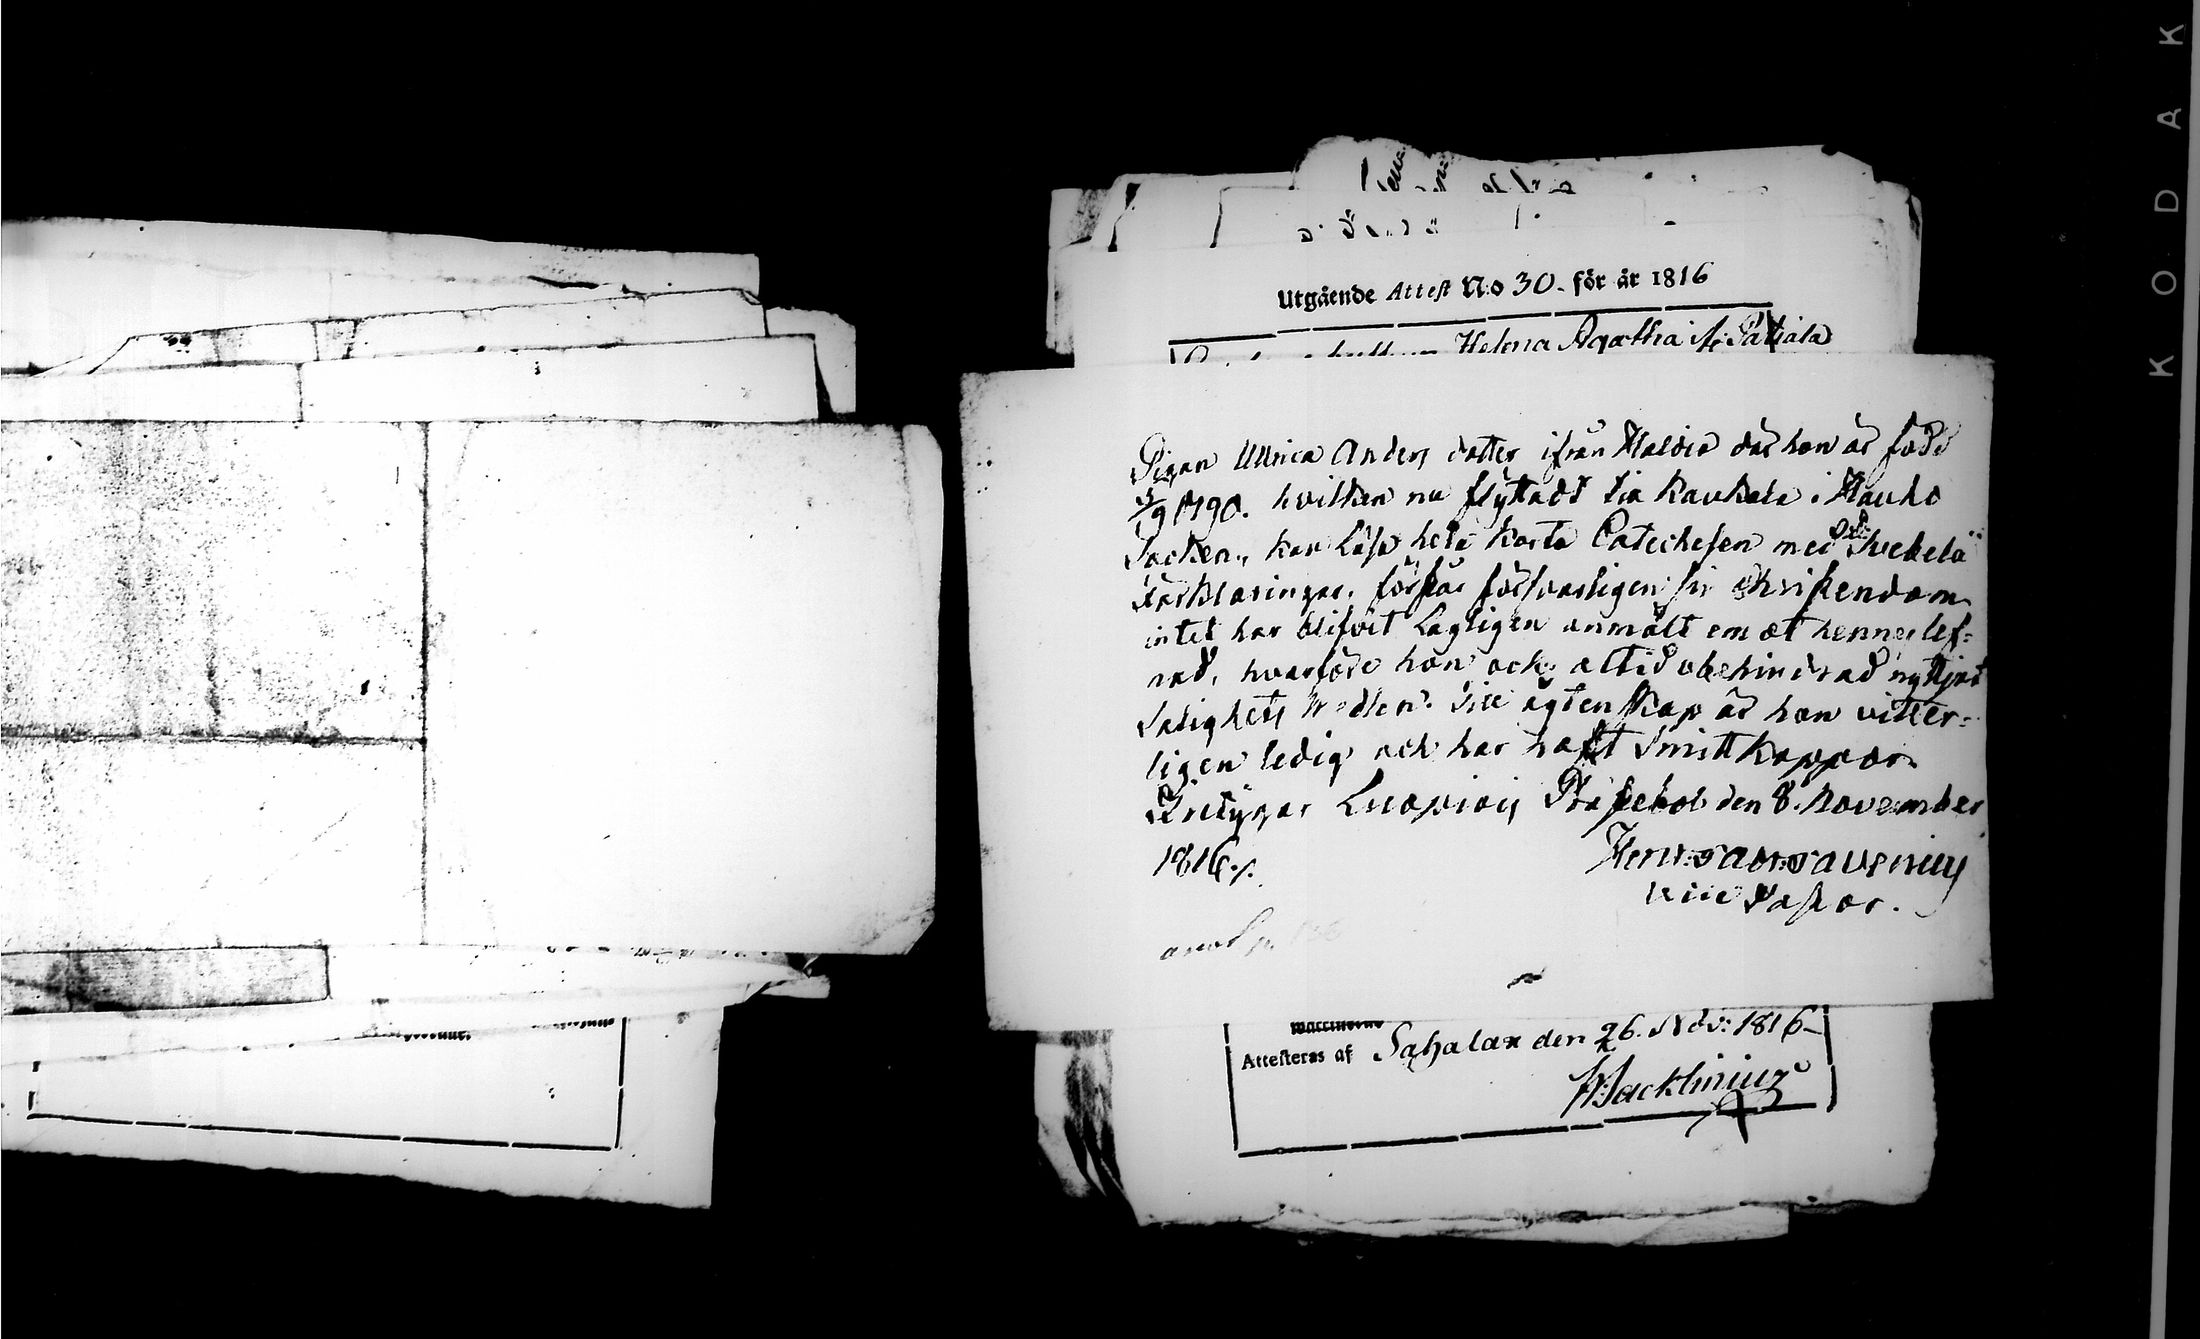 Utgående Attest N:o 30. för år 1816
Helena Agatha
Pigan Ullrica Anders dotter ifrån Haldia där hon är född
1790. hvilken nu flyttadt till Kaukala i Hauho
Socken, kan Läsa hela korta Catechesen med Svebelii
förklaringar, förstår försvarligen sin Christendom
intet har blifvit Lagligen anmält om et hennes lef-
nad, hvarföre hon ock altid obehindrad nyttjat
Salighets Medlen. Till ägtenskap är hon vitter-
ligen ledig och har haft Smittkoppor.
Intygar Luopiois Prästebol den 8. November
1816./.
vice Pastor.
Attesteras af Sahalax den 26. Nov: 1816
KODAK